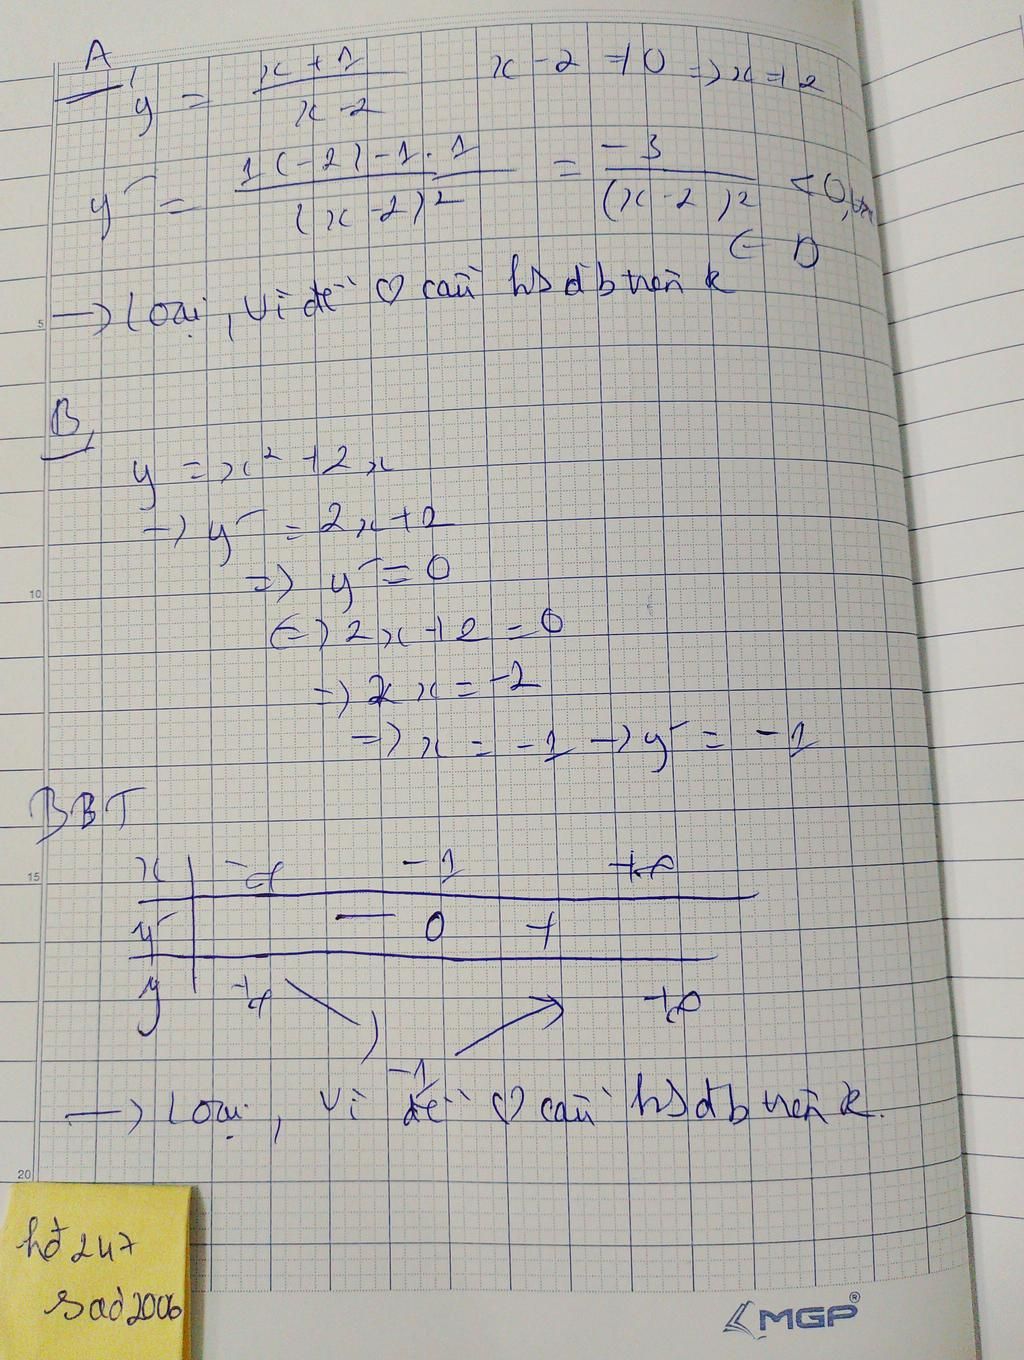 A
y = x + 1 / x - 2    x - 2 ≠ 0 => x ≠ 2
y' = 1(-2) - 1.1 / (x - 2)² = -3 / (x - 2)² < 0,
∈ D
-> Loại, vì đề ♡ cầu hs đb trên R
5
B,
y = x² + 2x
-> y' = 2x + 2
=> y' = 0
<=> 2x + 2 = 0
10
=> 2x = -2
=> x = -1 -> y = -1
BBT
x -∞ -1 +∞
15
y' — 0 +
y +∞ -1 +∞
-> Loại, vì đề ♡ cầu hs đb trên R.
20
hđ 247
sad2006
MGP®